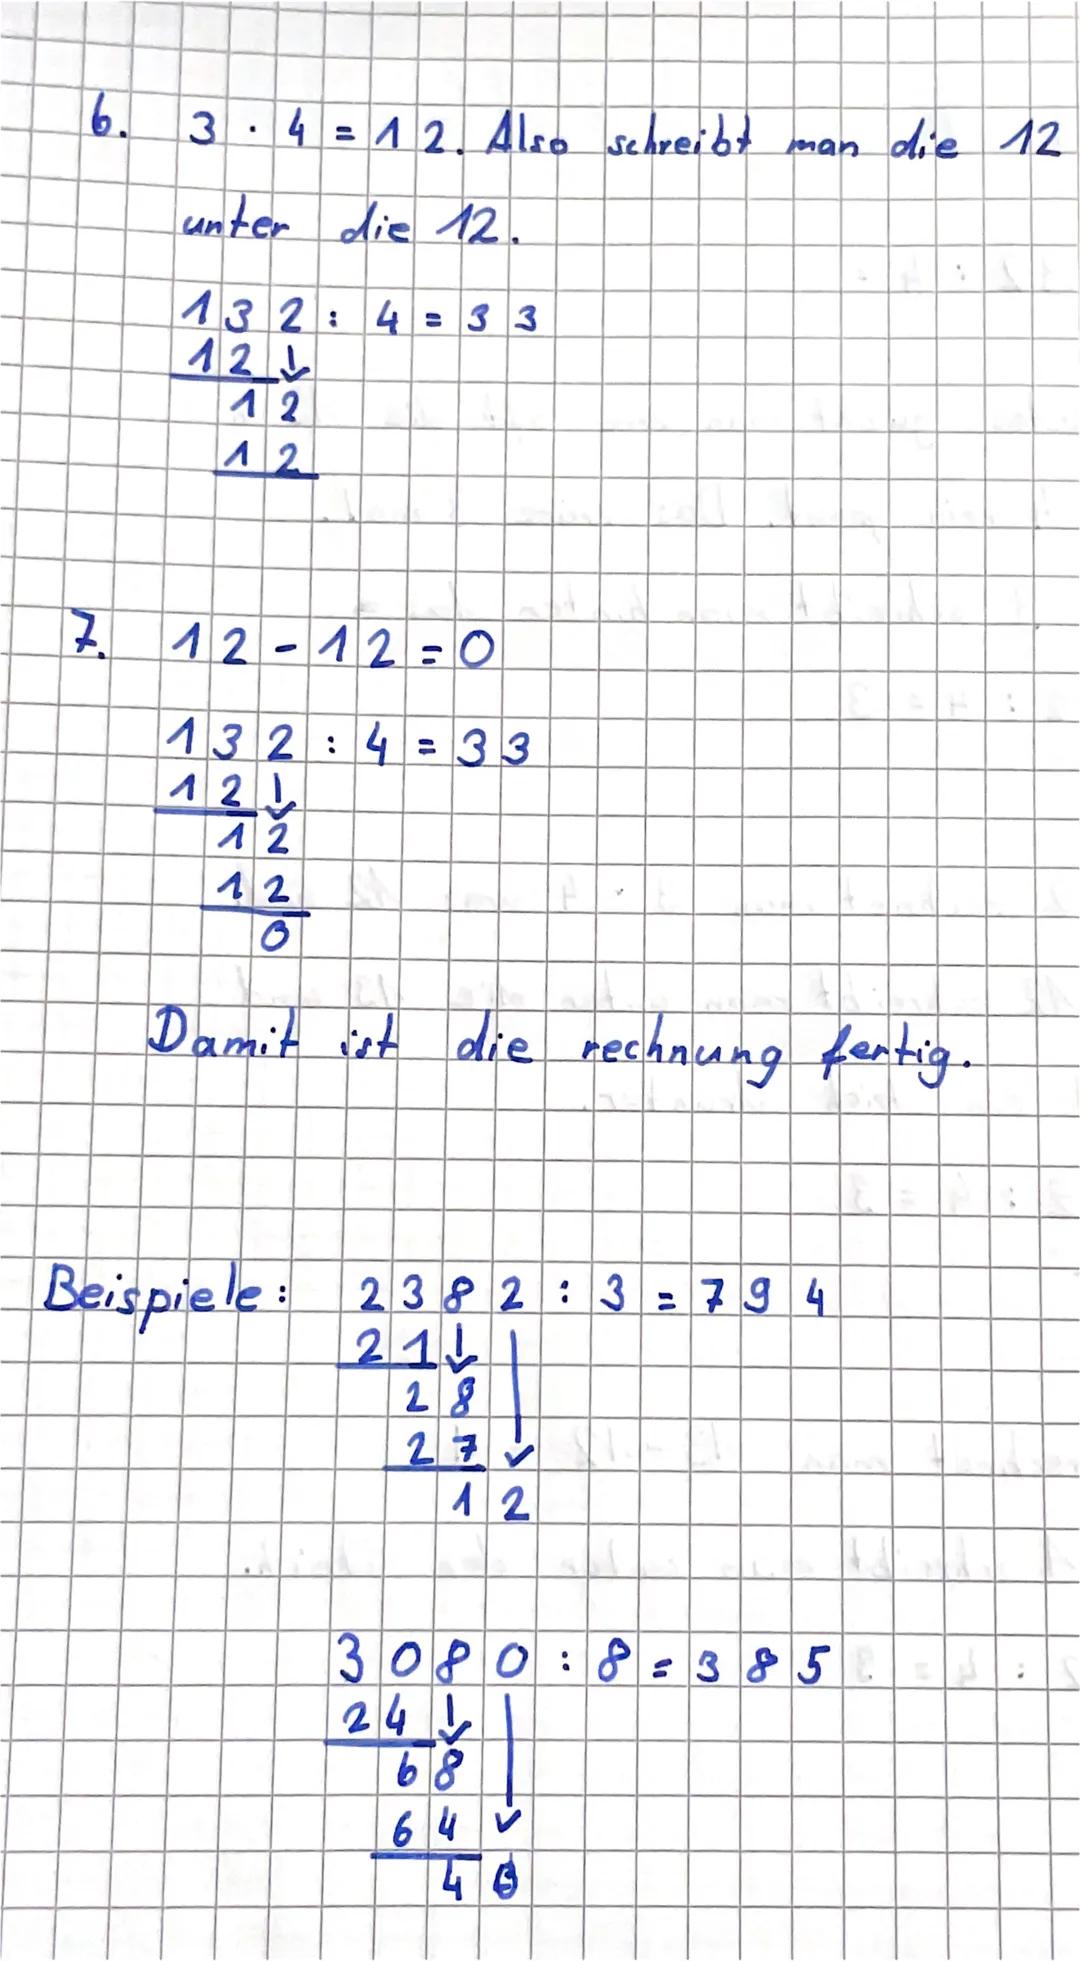 6. 3 · 4 = 12. Also schreibt man die 12
unter die 12.
132 : 4 = 33
12 ↓
12
12
7. 12 - 12 = 0
132 : 4 = 33
12 ↓
12
12
0
Damit ist die rechnung fertig.
Beispiele: 2382 : 3 = 794
21 ↓
28
27 ↓
12
3080 : 8 = 385
24 ↓
68
64 ↓
40